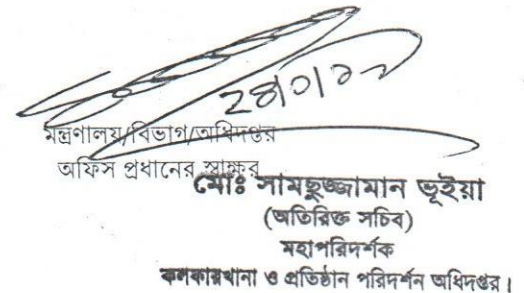 মন্ত্রণালয়/বিভাগ/অধিদপ্তর
অফিস প্রধানের স্বাক্ষর
মোঃ সামছুজ্জামান ভূইয়া
(অতিরিক্ত সচিব)
মহাপরিদর্শক
কলকারখানা ও প্রতিষ্ঠান পরিদর্শন অধিদপ্তর।